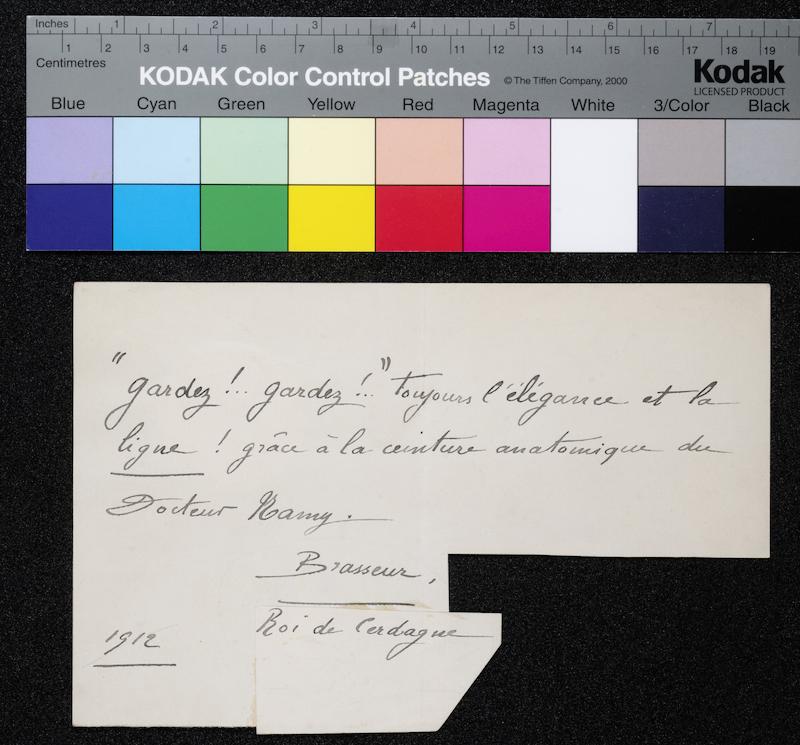 Inches 1 2 3 4 5 6 7
1 2 3 4 5 6 7 8 9 10 11 12 13 14 15 16 17 18 19
Centimetres
KODAK Color Control Patches © The Tiffen Company, 2000 Kodak
LICENSED PRODUCT
Blue Cyan Green Yellow Red Magenta White 3/Color Black
"Gardez !.. gardez !.." toujours l'élégance et la
ligne ! grâce à la ceinture anatomique du
Docteur Namy.
Brasseur,
Roi de Cerdagne
1912